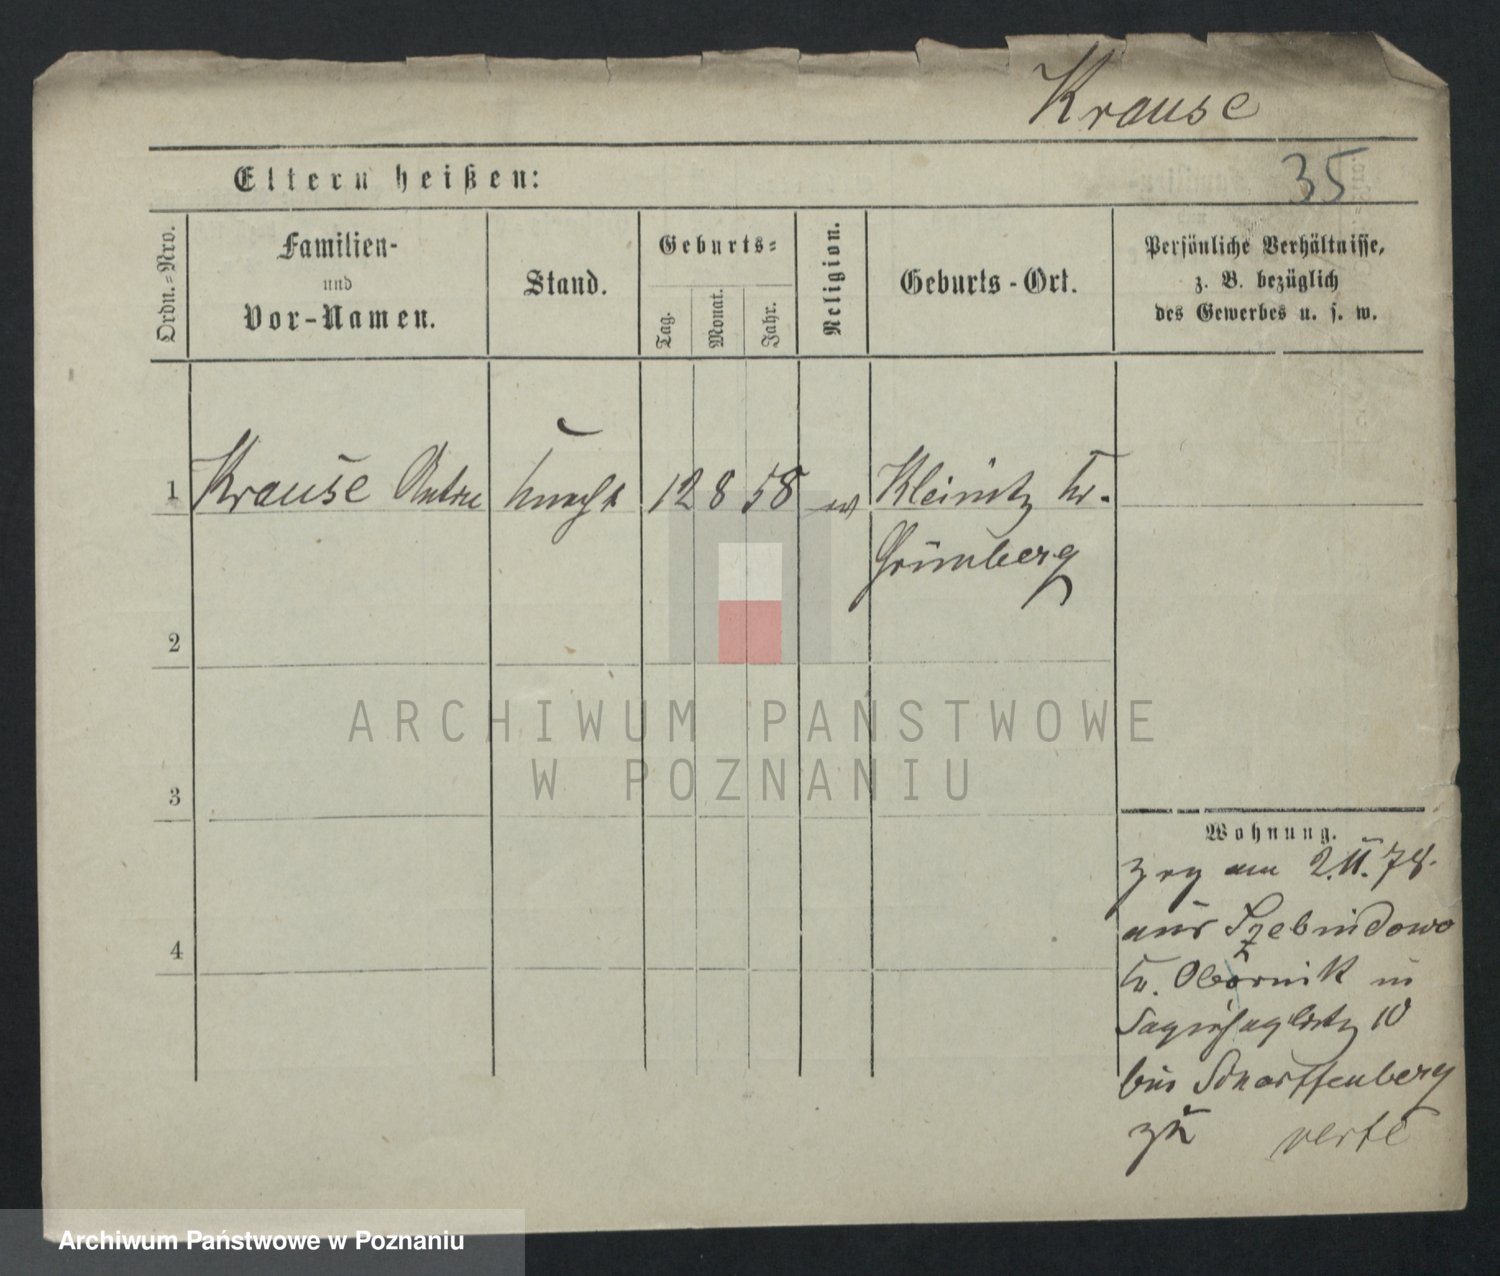 Krause
35
Eltern heißen:
Ordn.=Nro.
Familien-
und
Vor-Namen.
Stand.
Geburts=
Tag.
Monat.
Jahr.
Religion.
Geburts-Ort.
Persönliche Verhältnisse,
z. B. bezüglich
des Gewerbes u. s. w.
1 Krause Knecht 12 8 58 Kleinitz Kr.
Grünberg
2
3
4
Wohnung.
zog am 2.11.78.
aus
Kr. Obornik in
10
bei Scharffenberg
zu verte
ARCHIWUM PAŃSTWOWE
W POZNANIU
Archiwum Państwowe w Poznaniu